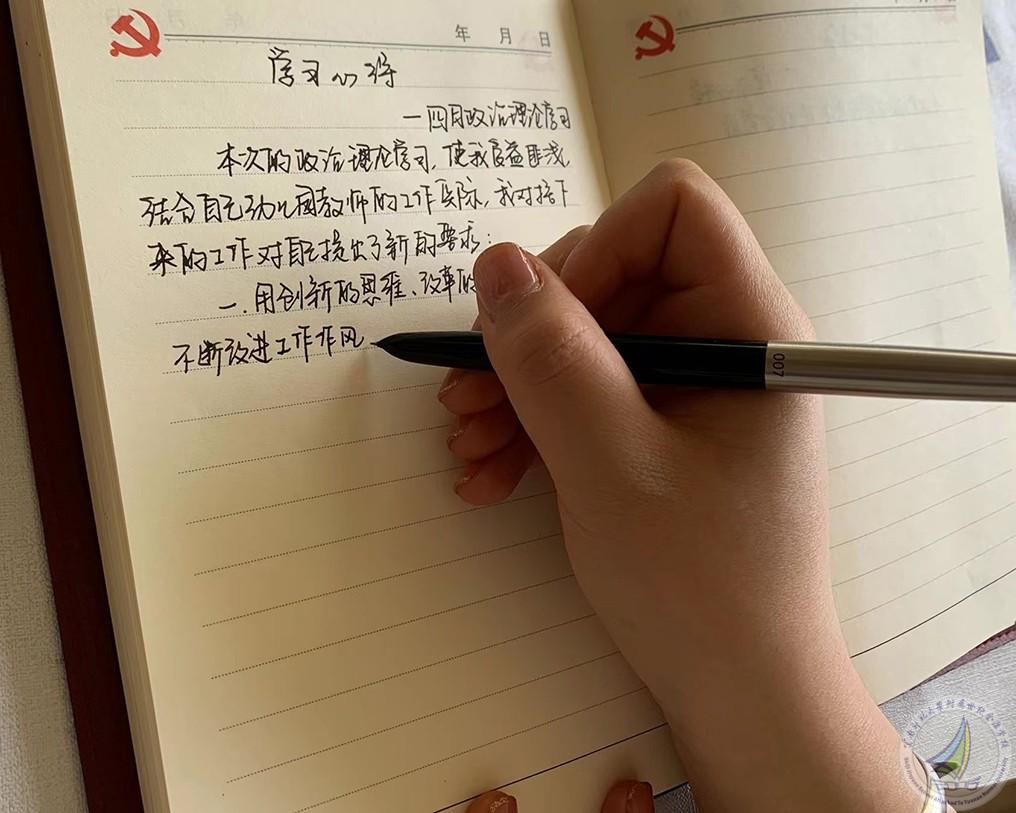 年 月 日
学习心得
一四月政治理论学习
本次的政治理论学习，使我受益匪浅，
结合自己幼儿园教师的工作实际，我对接下
来的工作对自己提出了新的要求：
一.用创新的思维、改革的
不断改进工作作风
007